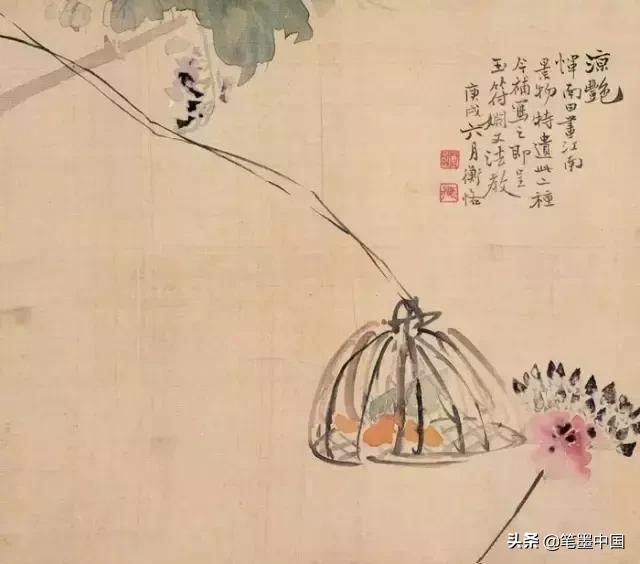 涼艷
惲南田畫江南
景物特遺此二種
今補寫之即呈
玉符姻丈法教
庚戌六月衡恪
头条 @笔墨中国